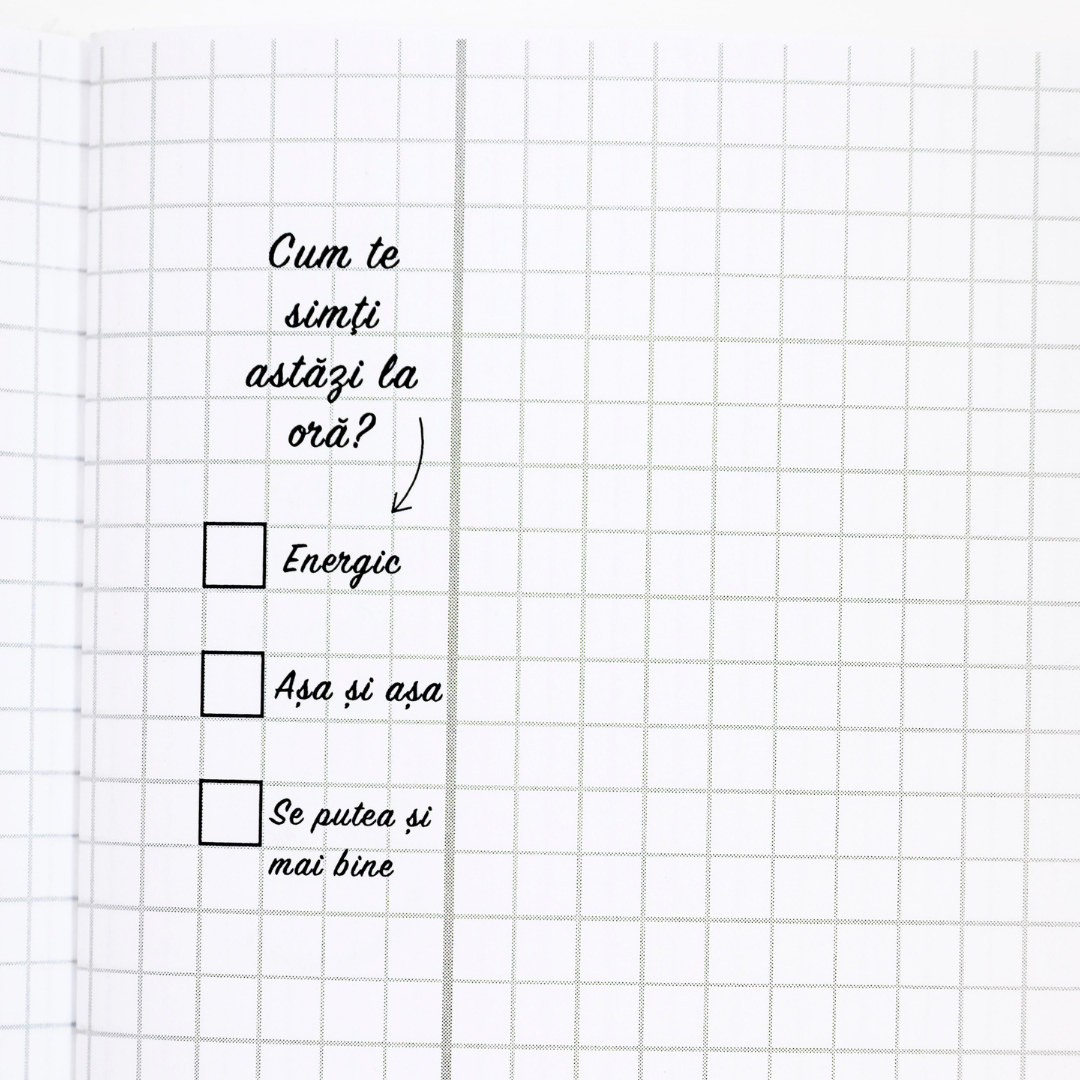 Cum te
simți
astăzi la
oră?
Energic
Așa și așa
Se putea și
mai bine